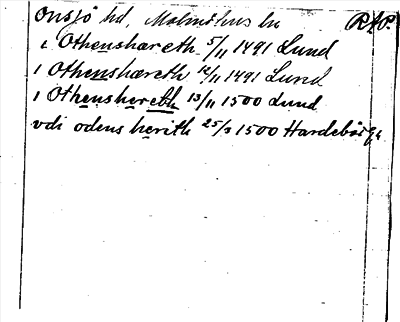 Onsjö hd, Malmöhus ln RAP.
i Othenshæreth 5/11 1491 Lund
i Othenshæreth 12/11 1491 Lund
i Othensherethh 13/11 1500 Lund
vdi odens herith 25/3 1500 Hardebärga